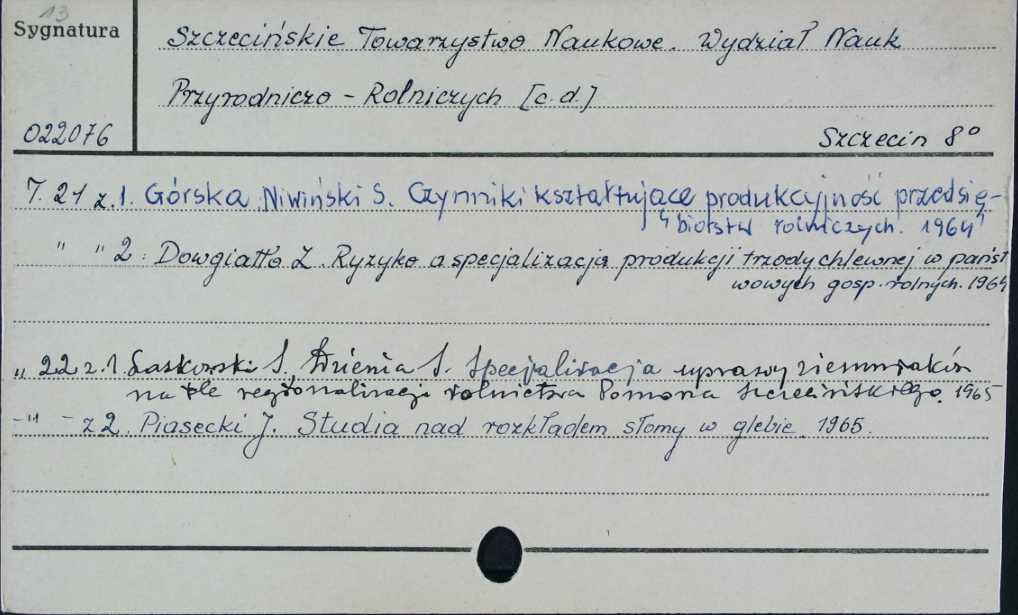 13
Sygnatura
Szczecińskie Towarzystwo Naukowe. Wydział Nauk
Przyrodniczo - Rolniczych [c.d.]
022076
Szczecin 8°
T. 21 z. 1. Górska, Niwiński S. Czynniki kształtujące produkcyjność przedsię-
biorstw rolniczych. 1964
" " 2. Dowgiałło Z. Ryzyko a specjalizacja produkcji trzody chlewnej w państ
wowych gosp. rolnych. 1964
" 22 z. 1. Laskowski S., S. Specjalizacja uprawy ziemniaków
na tle regionalizacji rolnictwa Pomorza Szczecińskiego. 1965
-"- z 2. Piasecki J. Studia nad rozkładem słomy w glebie. 1965.